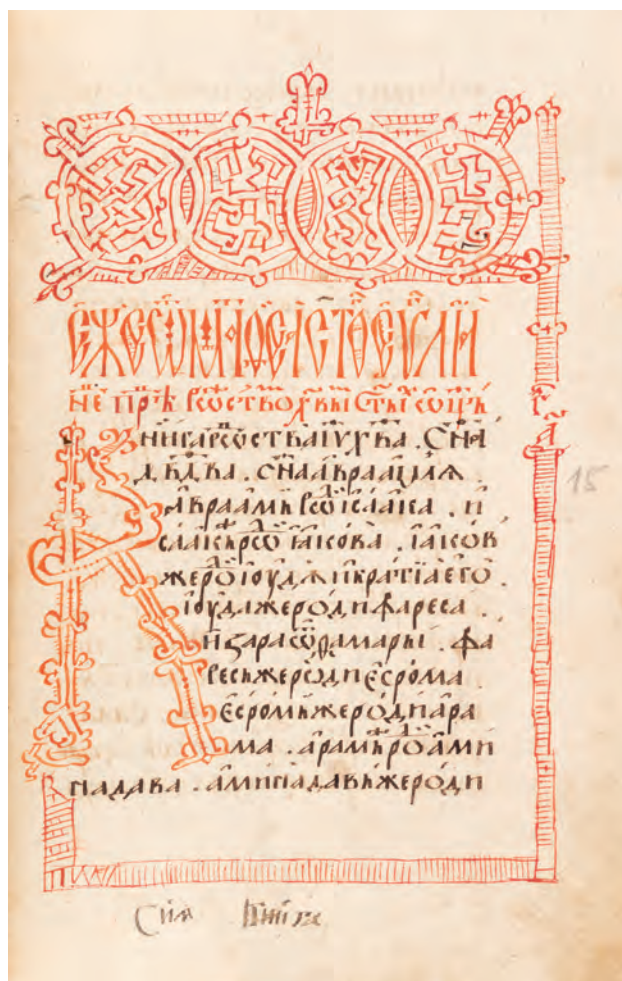 Е҆ЖЕ Ѿ МАѲЕА СТО́Е ЕѴⷢ҇ЛИ
НЕⷣ҇ ПРѢⷤ РⷪСТВО Хⷭ҇ВЫ СТЫⷯ Ѡц҃Ь
Книга рⷪства і҆ѵ҃ хв҃а . сн҃а
дв҃два . сн҃а авраамлѧ
авраамь роⷣ исаака . и
саакже роⷣ іакова . іаков
же роⷣ іоудѫ и братїа его .
іоуда же роди фареса .
и зара ѿ ѳамары . фа
ресь же роди есрома
есромь же роди ара
ма . арамь роⷣ ами
надава . аминадавь же роди
15
Сиѧ